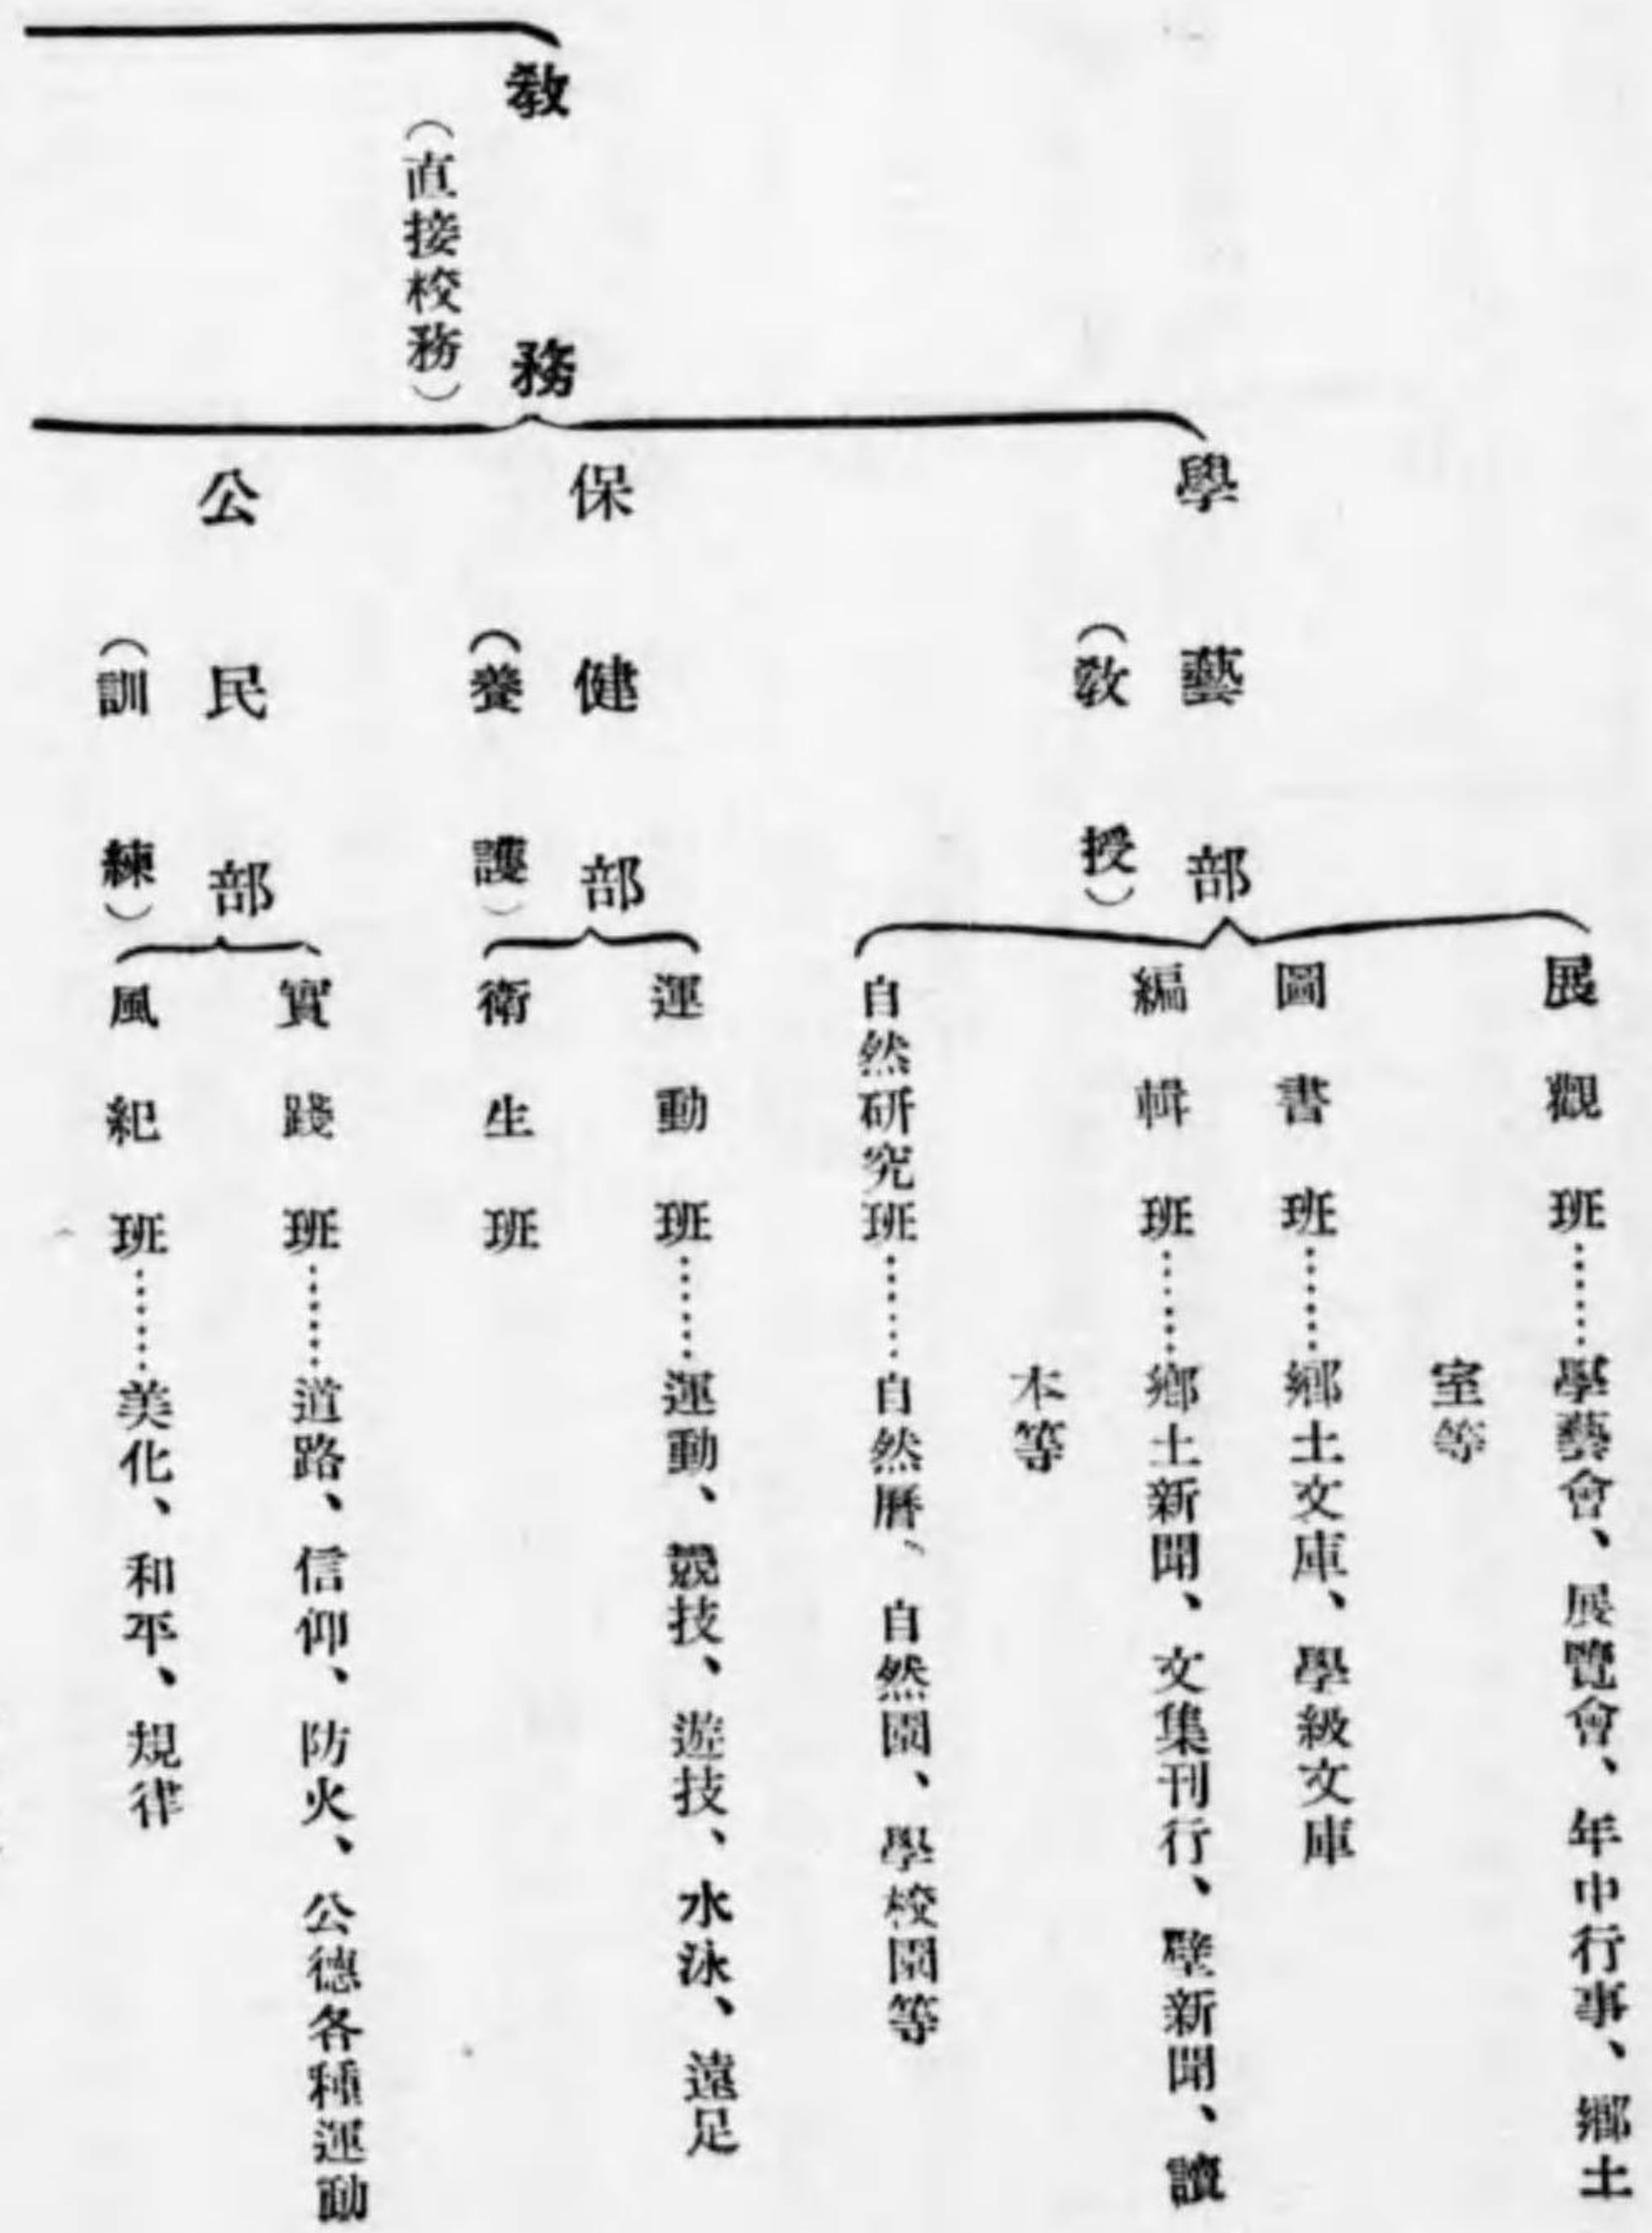 教務
（直接校務）
學藝部
（教授）
展觀班………學藝會、展覽會、年中行事、鄕土
室等
圖書班………鄕土文庫、學級文庫
編輯班………鄕土新聞、文集刊行、壁新聞、讀
本等
自然研究班………自然曆、自然園、學校園等
保健部
（養護）
運動班………運動、競技、遊技、水泳、遠足
衛生班
公民部
（訓練）
實踐班………道路、信仰、防火、公德各種運動
風紀班………美化、和平、規律